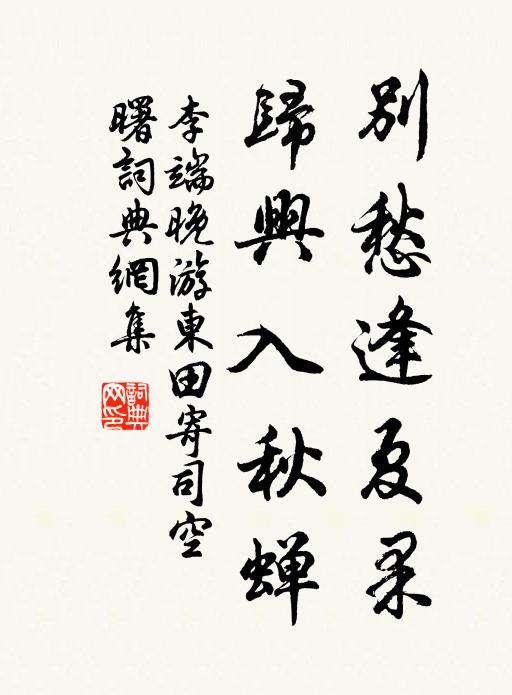 別愁逢夏果
歸興入秋蝉
李端晚游東田寄司空
曙詞典網集
詞典網印